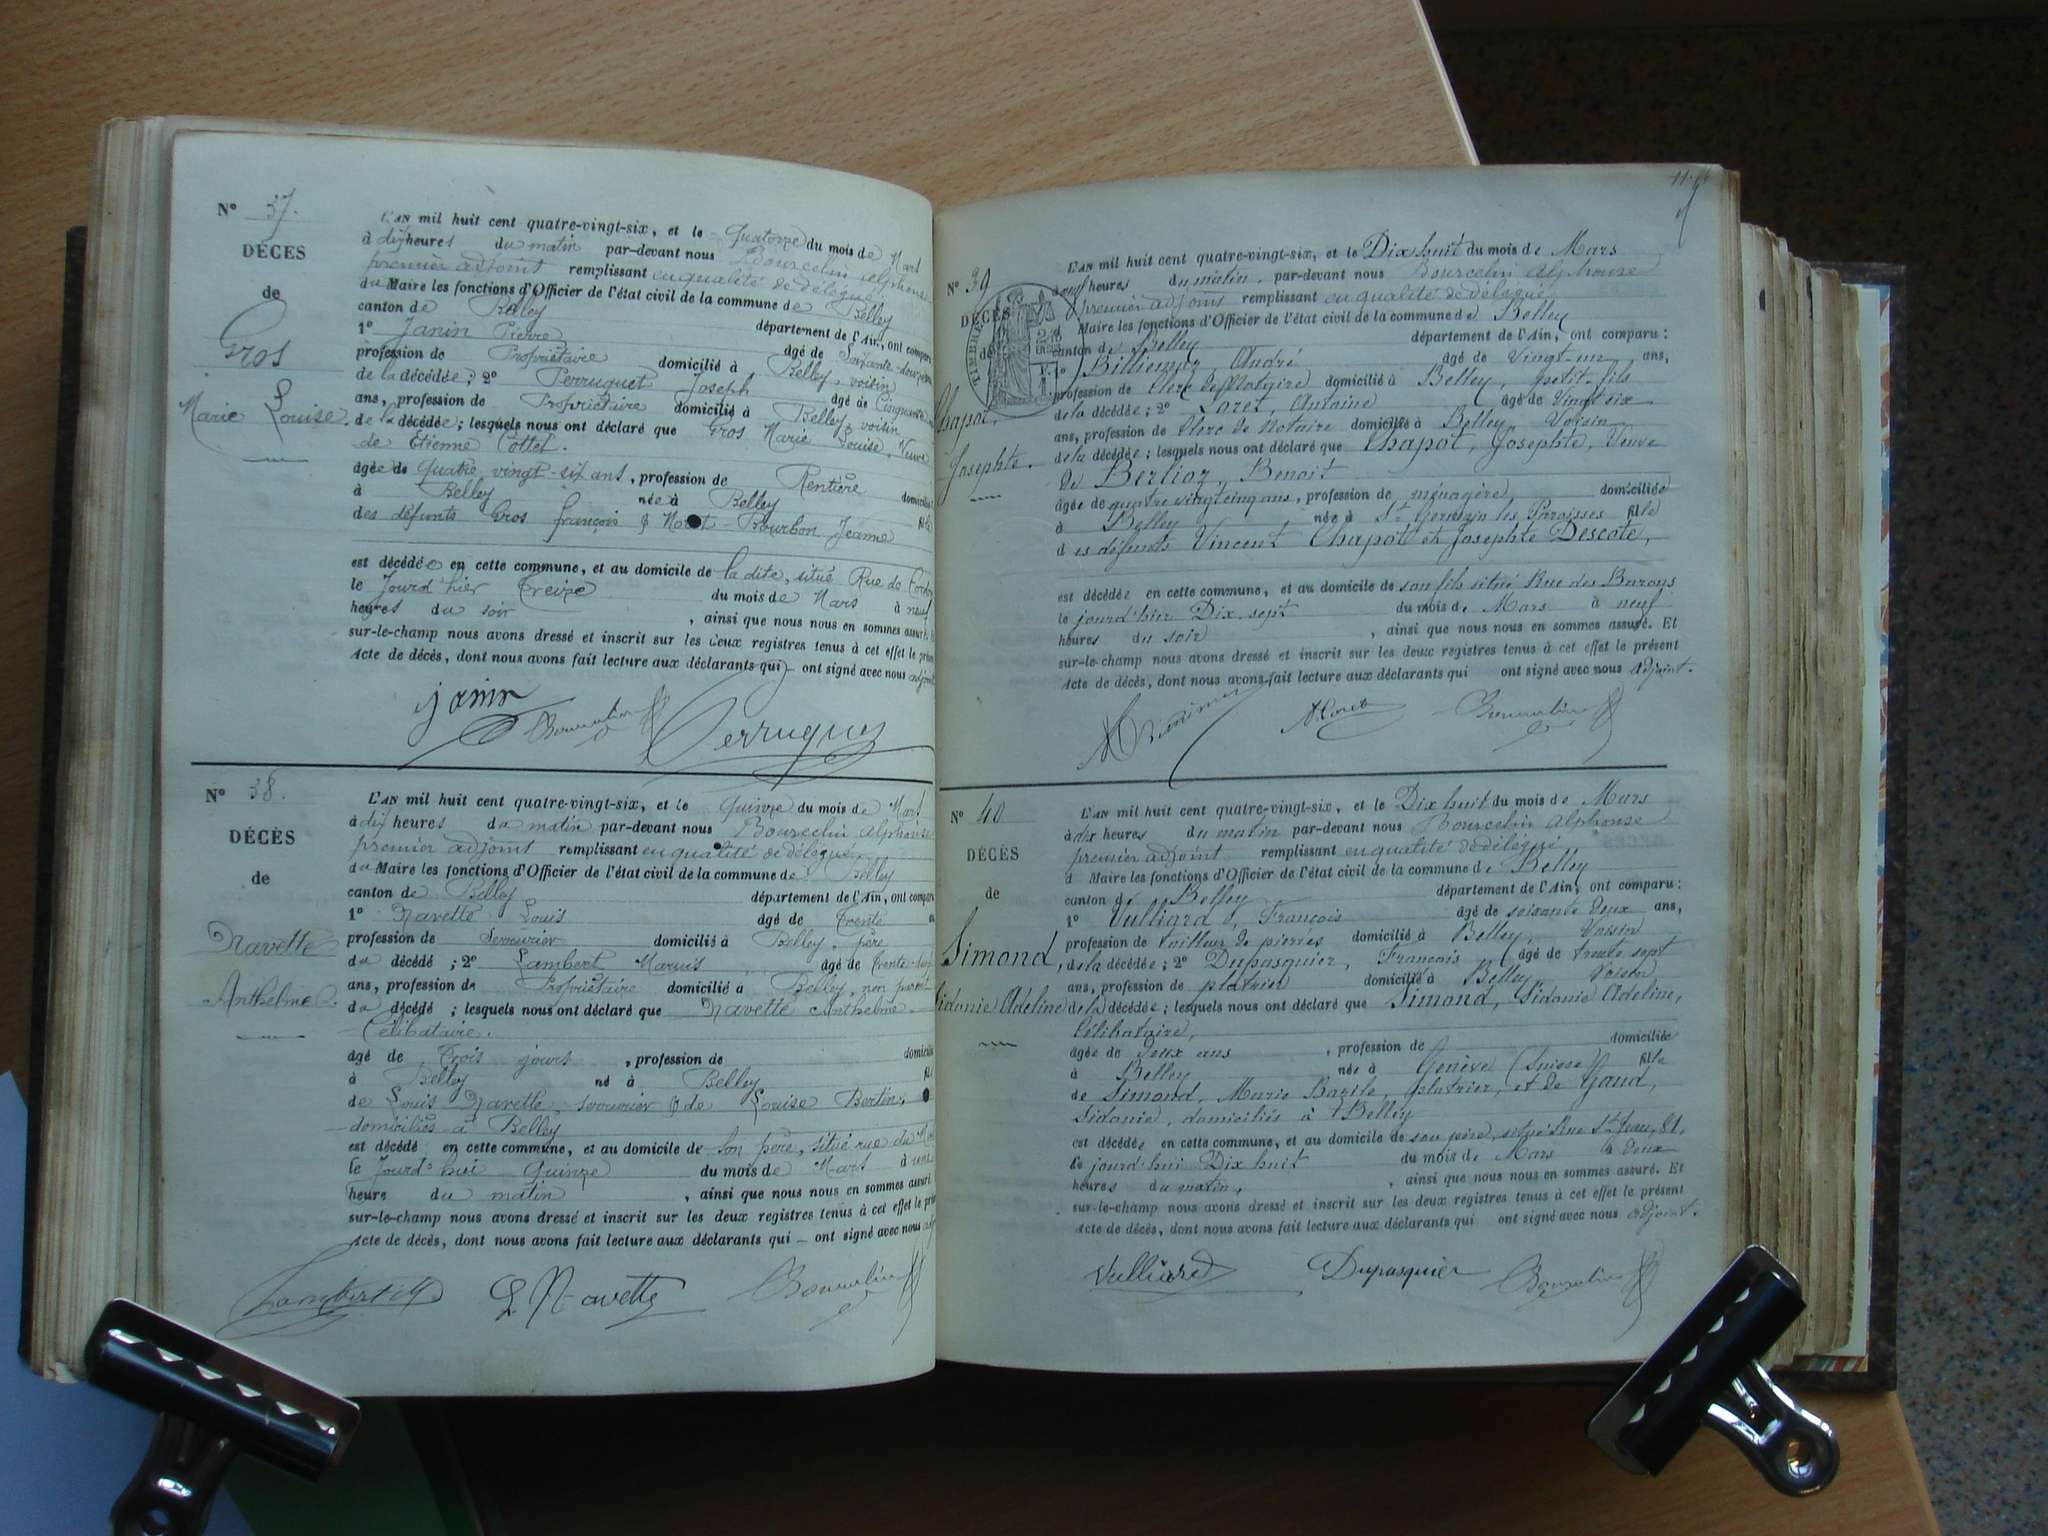 N° 37.
DÉCÈS
de
Gros
Marie Louise.
L'AN mil huit cent quatre-vingt-six, et le Quatorze du mois de Mars
à dix heures du matin par-devant nous Bourcelin Alphonse
premier adjoint remplissant en qualité de délégué
du Maire les fonctions d'Officier de l'état civil de la commune de Belley
canton de Belley département de l'Ain, ont comparu
1° Janin Pierre âgé de Soixante
profession de Propriétaire domicilié à Belley, voisin
de la décédée; 2° Perruquet Joseph âgé de Cinquante
ans, profession de Propriétaire domicilié à Belley, voisin
de la décédée; lesquels nous ont déclaré que Gros Marie Louise, Veuve
de Etienne Cottet.
âgée de quatre vingt-six ans, profession de Rentière
à Belley née à Belley
des défunts Gros françois & Bourbon Jeanne
est décédée en cette commune, et au domicile de la dite, situé Rue de
le Jourd'hier Treize du mois de Mars à neuf
heures du soir, ainsi que nous nous en sommes assuré. Et
sur-le-champ nous avons dressé et inscrit sur les deux registres tenus à cet effet le
Acte de décès, dont nous avons fait lecture aux déclarants qui ont signé avec nous adjoint
janin Bourcelin Perruquet
N° 38.
DÉCÈS
de
Navette
Anthelme.
L'AN mil huit cent quatre-vingt-six, et le Quinze du mois de Mars
à dix heures du matin par-devant nous Bourcelin Alphonse
premier adjoint remplissant en qualité de délégué
du Maire les fonctions d'Officier de l'état civil de la commune de Belley
canton de Belley département de l'Ain, ont comparu
1° Navette Louis âgé de Trente
profession de Serrurier domicilié à Belley, père
du décédé; 2° Lambert Maruis âgé de trente
ans, profession de Propriétaire domicilié à Belley, non parent
du décédé; lesquels nous ont déclaré que Navette Anthelme
Célibataire.
âgé de Trois jours, profession de
à Belley né à Belley
de Louis Navette, serrurier & de Louise Bertin,
domiciliés à Belley
est décédé en cette commune, et au domicile de Son père, situé rue du
le Jourd'hui Quinze du mois de Mars à une
heure du matin, ainsi que nous nous en sommes assuré.
sur-le-champ nous avons dressé et inscrit sur les deux registres tenus à cet effet le
Acte de décès, dont nous avons fait lecture aux déclarants qui ont signé avec nous
Lambert M L. Navette Bourcelin
N° 39
DÉCÈS
de
Chapot,
Josephte.
L'AN mil huit cent quatre-vingt-six, et le Dix huit du mois de Mars
heures du matin, par-devant nous Bourcelin Alphonse
premier adjoint remplissant en qualité de délégué
Maire les fonctions d'Officier de l'état civil de la commune de Belley
canton de Belley département de l'Ain, ont comparu:
1° Billiemaz, André âgé de vingt-un ans,
profession de Clerc de Notaire domicilié à Belley, petit-fils
de la décédée; 2° Loret, Antoine âgé de vingt six
ans, profession de Clerc de Notaire domicilié à Belley Voisin
de la décédée; lesquels nous ont déclaré que Chapot, Josephte, Veuve
de Berlioz, Benoit
âgée de quatre vingt cinq ans, profession de ménagère domiciliée
à Belley née à St Germain les Paroisses fille
des défunts Vincent Chapot et Josephte Descote,
est décédée en cette commune, et au domicile de son fils situé Rue des Barons
le jourd'hier Dix-sept du mois de Mars à neuf
heures du soir, ainsi que nous nous en sommes assuré. Et
sur-le-champ nous avons dressé et inscrit sur les deux registres tenus à cet effet le présent
Acte de décès, dont nous avons fait lecture aux déclarants qui ont signé avec nous adjoint.
A Loret Bourcelin
N° 40
DÉCÈS
de
Simond,
Sidonie Adeline
L'AN mil huit cent quatre-vingt-six, et le Dix huit du mois de Mars
à dix heures du matin par-devant nous Bourcelin Alphonse
premier adjoint remplissant en qualité de délégué
d Maire les fonctions d'Officier de l'état civil de la commune de Belley
canton de Belley département de l'Ain, ont comparu:
1° Vulliard, François âgé de soixante deux ans,
profession de tailleur de pierres domicilié à Belley, Voisin
de la décédée; 2° Dupasquier, François âgé de trente sept
ans, profession de platrier domicilié à Belley Voisin
de la décédée; lesquels nous ont déclaré que Simond, Sidonie Adeline,
Célibataire,
âgée de Deux ans, profession de domiciliée
à Belley née à Genève (Suisse) fille
de Simond, Marie Bazile, platrier, et de Gaud,
Sidonie, domiciliés à Belley
est décédée en cette commune, et au domicile de son père, situé Rue St Jean, 81.
le jourd'hui Dix huit du mois de Mars à Deux
heures du matin, ainsi que nous nous en sommes assuré. Et
sur-le-champ nous avons dressé et inscrit sur les deux registres tenus à cet effet le présent
Acte de décès, dont nous avons fait lecture aux déclarants qui ont signé avec nous adjoint.
Vulliard Dupasquier Bourcelin